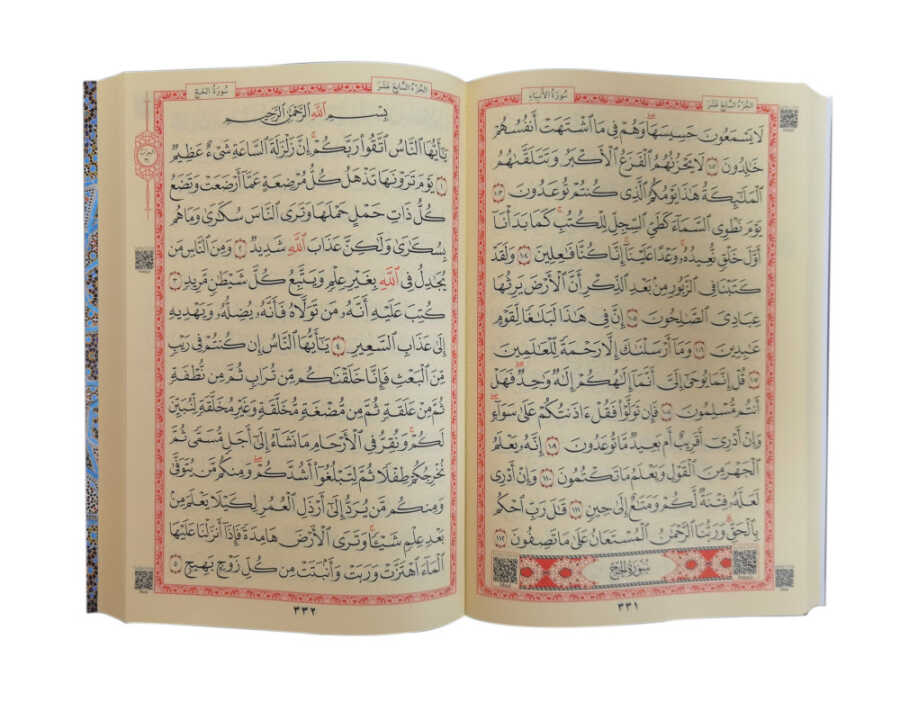 الجزء السابع عشر
سورة الأنبياء
لَا يَسْمَعُونَ حَسِيسَهَا وَهُمْ فِي مَا اشْتَهَتْ أَنفُسُهُمْ
خَالِدُونَ ١٠٢ لَا يَحْزُنُهُمُ الْفَزَعُ الْأَكْبَرُ وَتَتَلَقَّاهُمُ
الْمَلَائِكَةُ هَذَا يَوْمُكُمُ الَّذِي كُنتُمْ تُوعَدُونَ ١٠٣
يَوْمَ نَطْوِي السَّمَاءَ كَطَيِّ السِّجِلِّ لِلْكُتُبِ كَمَا بَدَأْنَا
أَوَّلَ خَلْقٍ نُّعِيدُهُ وَعْدًا عَلَيْنَا إِنَّا كُنَّا فَاعِلِينَ ١٠٤ وَلَقَدْ
كَتَبْنَا فِي الزَّبُورِ مِنْ بَعْدِ الذِّكْرِ أَنَّ الْأَرْضَ يَرِثُهَا
عِبَادِيَ الصَّالِحُونَ ١٠٥ إِنَّ فِي هَذَا لَبَلَاغًا لِّقَوْمٍ
عَابِدِينَ ١٠٦ وَمَا أَرْسَلْنَاكَ إِلَّا رَحْمَةً لِّلْعَالَمِينَ
١٠٧ قُلْ إِنَّمَا يُوحَى إِلَيَّ أَنَّمَا إِلَهُكُمْ إِلَهٌ وَاحِدٌ فَهَلْ
أَنتُم مُّسْلِمُونَ ١٠٨ فَإِن تَوَلَّوْا فَقُلْ آذَنتُكُمْ عَلَى سَوَاءٍ
وَإِنْ أَدْرِي أَقَرِيبٌ أَم بَعِيدٌ مَّا تُوعَدُونَ ١٠٩ إِنَّهُ يَعْلَمُ
الْجَهْرَ مِنَ الْقَوْلِ وَيَعْلَمُ مَا تَكْتُمُونَ ١١٠ وَإِنْ أَدْرِي
لَعَلَّهُ فِتْنَةٌ لَّكُمْ وَمَتَاعٌ إِلَى حِينٍ ١١١ قَالَ رَبِّ احْكُم
بِالْحَقِّ وَرَبُّنَا الرَّحْمَنُ الْمُسْتَعَانُ عَلَى مَا تَصِفُونَ ١١٢
سورة الحج
٣٣١
الجزء السابع عشر
سورة الحج
بِسْمِ اللَّهِ الرَّحْمَنِ الرَّحِيمِ
يَا أَيُّهَا النَّاسُ اتَّقُوا رَبَّكُمْ إِنَّ زَلْزَلَةَ السَّاعَةِ شَيْءٌ عَظِيمٌ
١ يَوْمَ تَرَوْنَهَا تَذْهَلُ كُلُّ مُرْضِعَةٍ عَمَّا أَرْضَعَتْ وَتَضَعُ
كُلُّ ذَاتِ حَمْلٍ حَمْلَهَا وَتَرَى النَّاسَ سُكَارَى وَمَا هُم
بِسُكَارَى وَلَكِنَّ عَذَابَ اللَّهِ شَدِيدٌ ٢ وَمِنَ النَّاسِ مَن
يُجَادِلُ فِي اللَّهِ بِغَيْرِ عِلْمٍ وَيَتَّبِعُ كُلَّ شَيْطَانٍ مَّرِيدٍ ٣
كُتِبَ عَلَيْهِ أَنَّهُ مَن تَوَلَّاهُ فَأَنَّهُ يُضِلُّهُ وَيَهْدِيهِ
إِلَى عَذَابِ السَّعِيرِ ٤ يَا أَيُّهَا النَّاسُ إِن كُنتُمْ فِي رَيْبٍ
مِّنَ الْبَعْثِ فَإِنَّا خَلَقْنَاكُم مِّن تُرَابٍ ثُمَّ مِن نُّطْفَةٍ
ثُمَّ مِنْ عَلَقَةٍ ثُمَّ مِن مُّضْغَةٍ مُّخَلَّقَةٍ وَغَيْرِ مُخَلَّقَةٍ لِّنُبَيِّنَ
لَكُمْ وَنُقِرُّ فِي الْأَرْحَامِ مَا نَشَاءُ إِلَى أَجَلٍ مُّسَمًّى ثُمَّ
نُخْرِجُكُمْ طِفْلًا ثُمَّ لِتَبْلُغُوا أَشُدَّكُمْ وَمِنكُم مَّن يُتَوَفَّى
وَمِنكُم مَّن يُرَدُّ إِلَى أَرْذَلِ الْعُمُرِ لِكَيْلَا يَعْلَمَ مِن
بَعْدِ عِلْمٍ شَيْئًا وَتَرَى الْأَرْضَ هَامِدَةً فَإِذَا أَنزَلْنَا عَلَيْهَا
الْمَاءَ اهْتَزَّتْ وَرَبَتْ وَأَنبَتَتْ مِن كُلِّ زَوْجٍ بَهِيجٍ ٥
٣٣٢